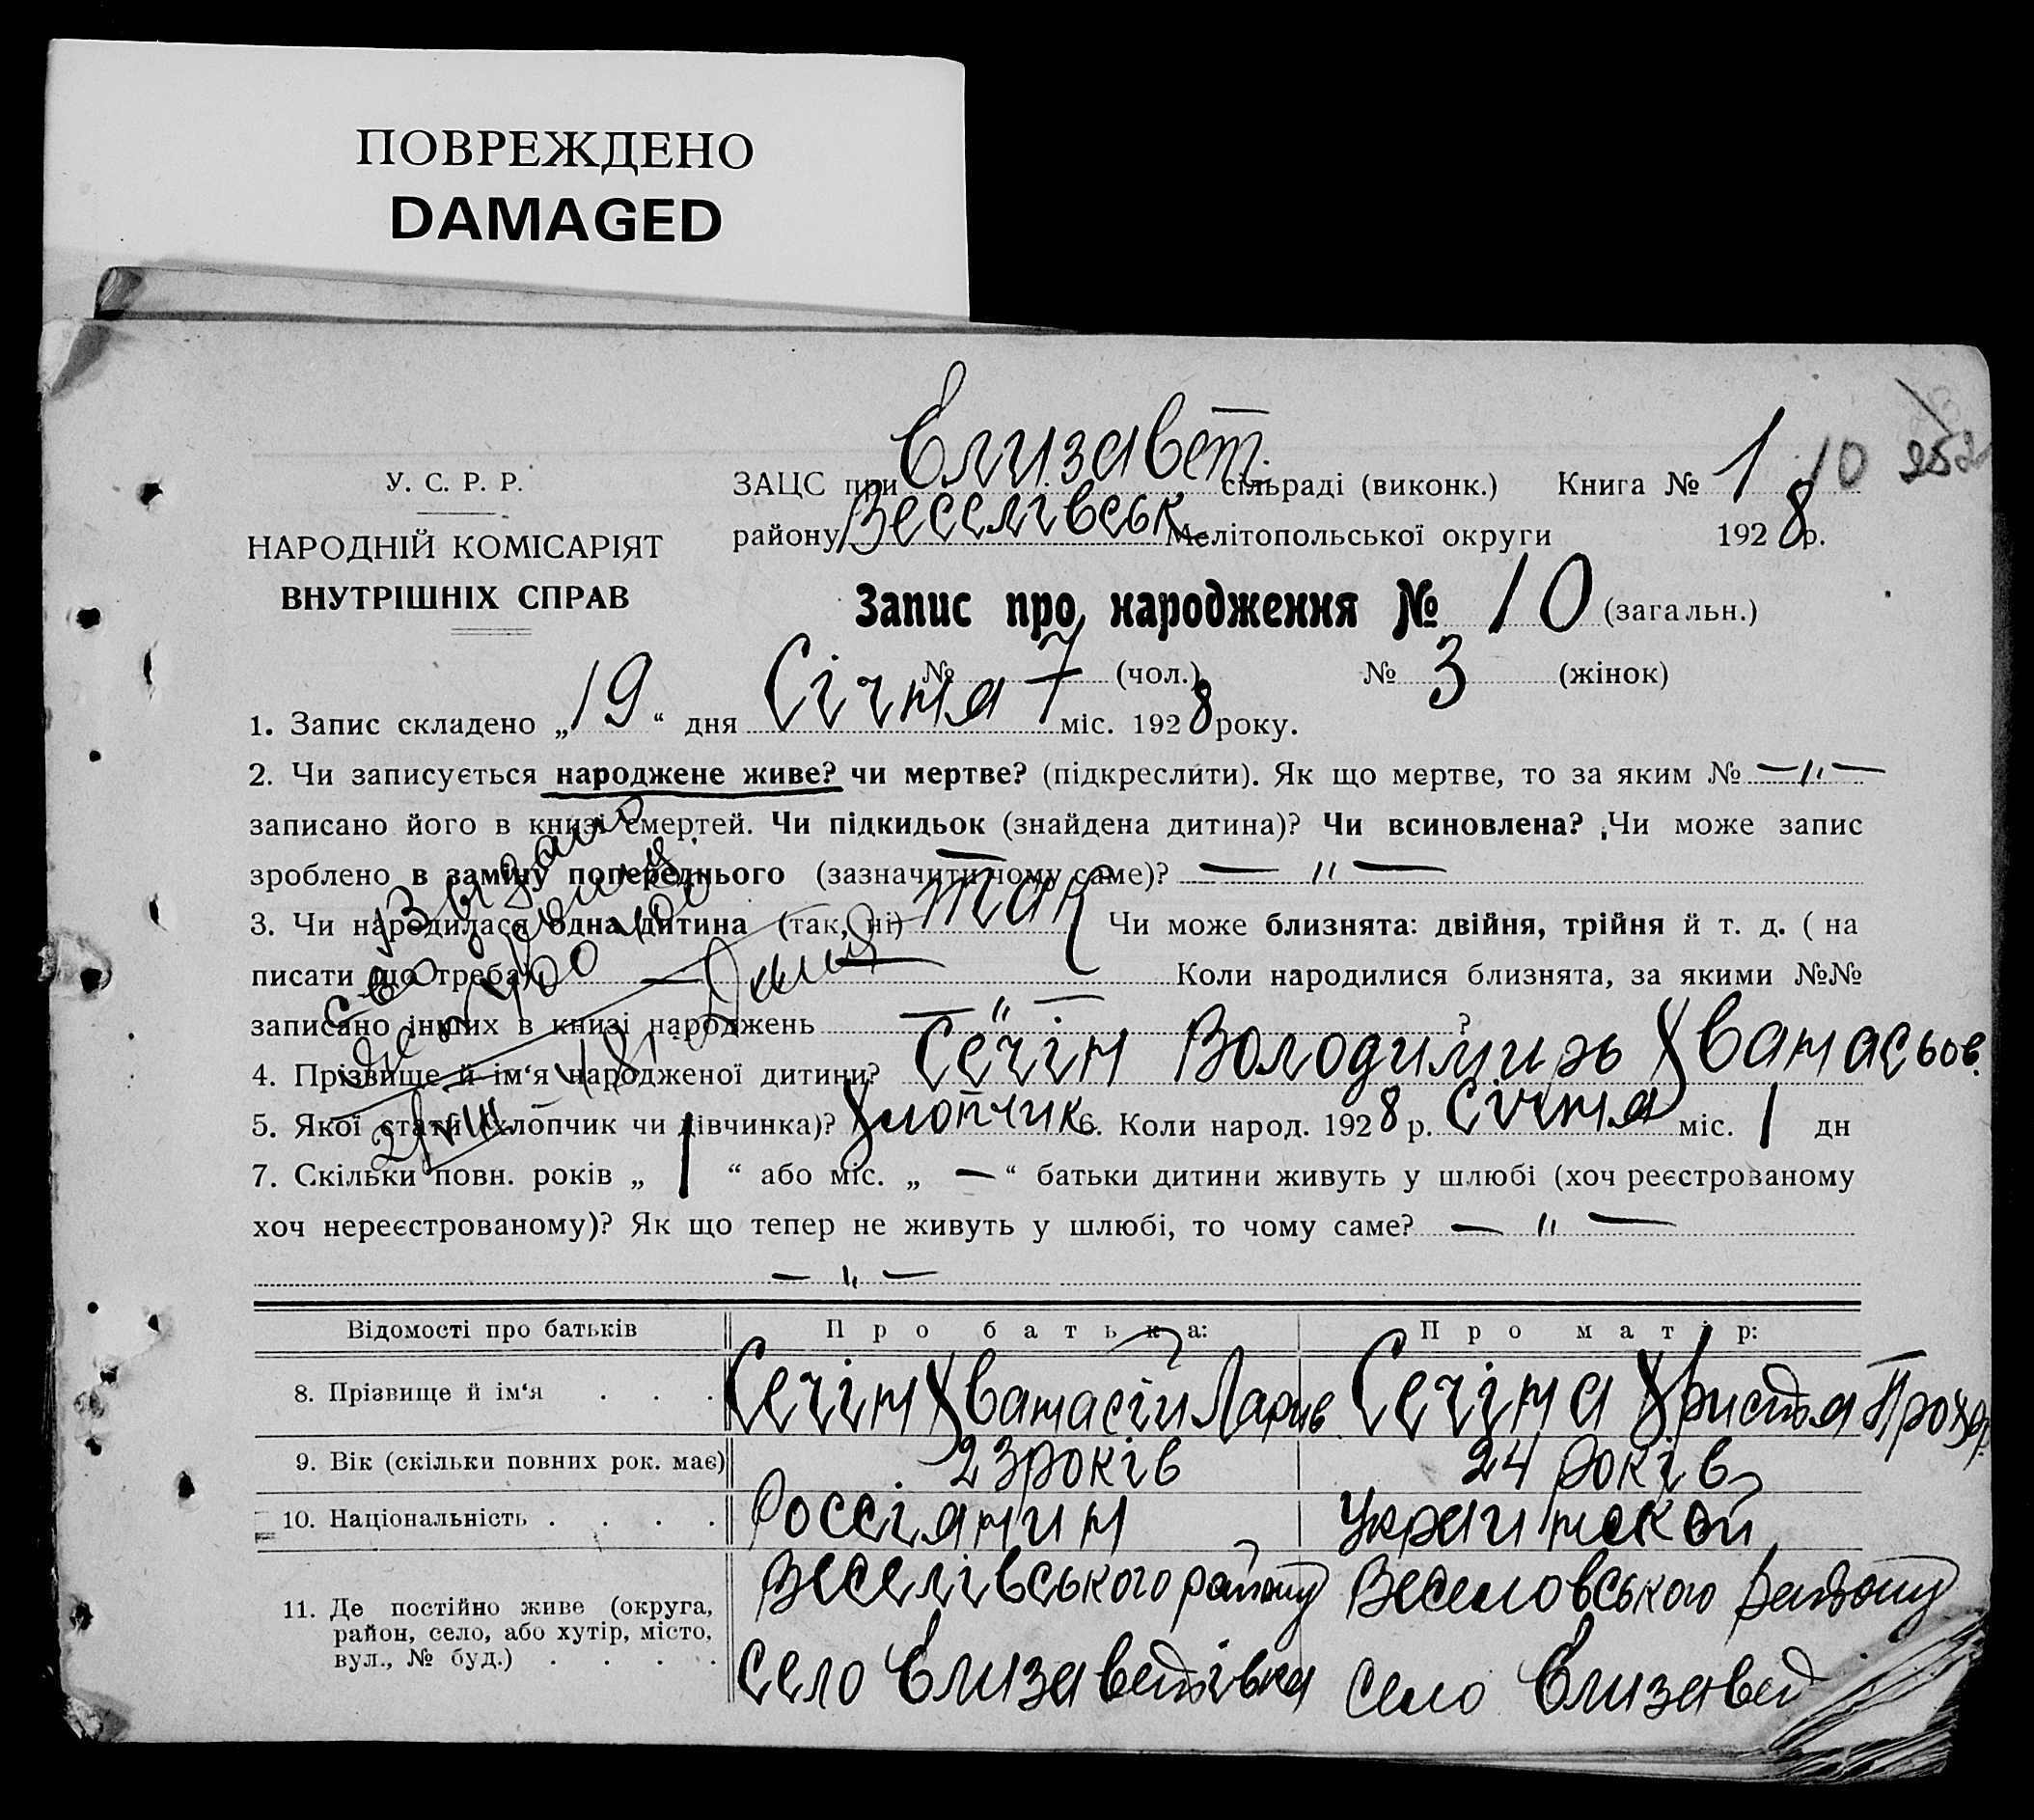 ПОВРЕЖДЕНО
DAMAGED
У. С. Р. Р.
НАРОДНІЙ КОМІСАРІЯТ
ВНУТРІШНІХ СПРАВ
ЗАЦС при Єлизавет. сільраді (виконк.) Книга № 1 10 252
району Веселівськ Мелітопольської округи 1928 р.
Запис про народження № 10 (загальн.)
№ 7 (чол.) № 3 (жінок)
1. Запис складено „19“ дня Січня міс. 1928 року.
2. Чи записується народжене живе? чи мертве? (підкреслити). Як що мертве, то за яким № — " —
записано його в книзі смертей. Чи підкидьок (знайдена дитина)? Чи всиновлена? Чи може запис
зроблено в заміну попереднього (зазначити чому саме)? — " —
3. Чи народилася одна дитина (так, ні) так Чи може близнята: двійня, трійня й т. д. ( на
писати що треба) — — Коли народилися близнята, за якими №№
записано інших в книзі народжень — " — ?
4. Прізвище й ім‘я народженої дитини? Сечін Володимирь Хванасьов.
5. Якої статі (хлопчик чи дівчинка)? Хлопчик 6. Коли народ. 1928 р. Січня міс. 1 дн
7. Скільки повн. років „ 1 “ або міс. „ — “ батьки дитини живуть у шлюбі (хоч реєстрованому
хоч нереєстрованому)? Як що тепер не живуть у шлюбі, то чому саме? — " —
— " —
Відомості про батьків Про батька: Про матір:
8. Прізвище й ім‘я . . . Сечін Хванасій Ларив Сечіна Христья Прохор.
9. Вік (скільки повних рок. має) 23 років 24 років
10. Національність . . . . Россіянин Украинской
11. Де постійно живе (округа, район, село, або хутір, місто, вул., № буд.) . . . . Веселівського району Веселовського району
село Єлизаветівка село Єлизавед